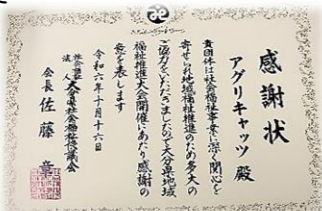 感謝状
アグリキャッツ 殿
貴団体は社会福祉事業に深く関心を
寄せられ地域福祉推進のため多大の
ご協力をいただきましたので大分県地域
福祉推進大会開催にあたり感謝の
意を表します
令和六年十月十六日
社会福祉法人 大分県社会福祉協議会
会長 佐藤 章